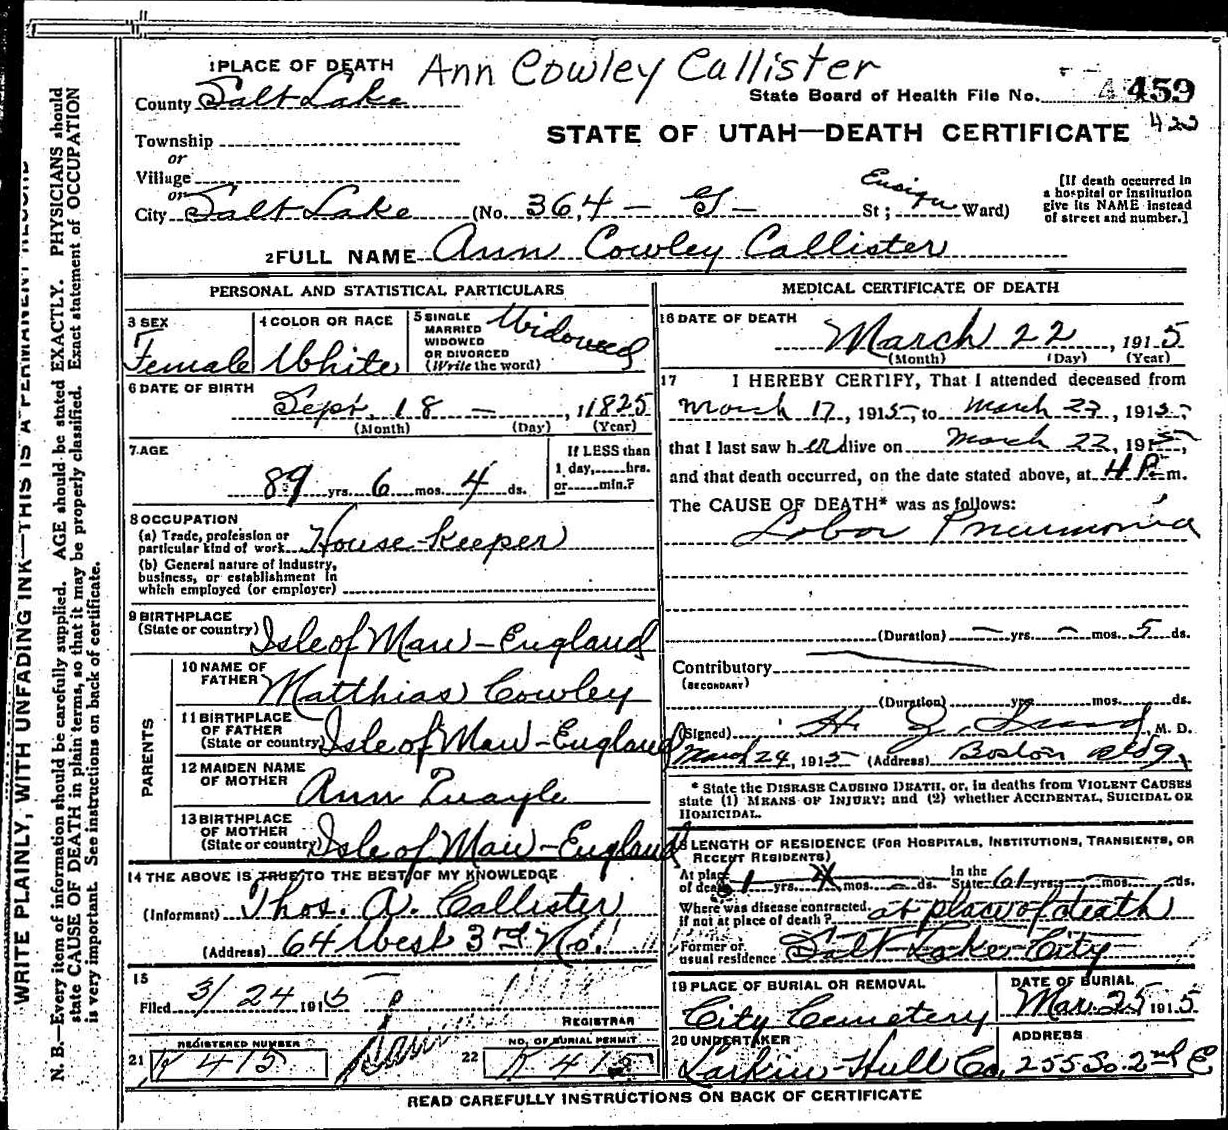 Ann Cowley Callister
1 PLACE OF DEATH
County Salt Lake
State Board of Health File No. 459
Township
or
STATE OF UTAH—DEATH CERTIFICATE 422
Village
or
City Salt Lake (No. 364 — G — St; Ensign Ward)
[If death occurred in
a hospital or institution
give its NAME instead
of street and number.]
2 FULL NAME Ann Cowley Callister
PERSONAL AND STATISTICAL PARTICULARS
3 SEX
Female
4 COLOR OR RACE
White
5 SINGLE
MARRIED
WIDOWED
OR DIVORCED
(Write the word)
Widowed
6 DATE OF BIRTH
Sept. 18 — , 1825
(Month) (Day) (Year)
7 AGE
89 yrs. 6 mos. 4 ds.
If LESS than
1 day, hrs.
or min.?
8 OCCUPATION
(a) Trade, profession or
particular kind of work House Keeper
(b) General nature of industry,
business, or establishment in
which employed (or employer)
9 BIRTHPLACE
(State or country) Isle of Man - England
PARENTS
10 NAME OF
FATHER Matthias Cowley
11 BIRTHPLACE
OF FATHER
(State or country) Isle of Man - England
12 MAIDEN NAME
OF MOTHER Ann Quayle
13 BIRTHPLACE
OF MOTHER
(State or country) Isle of Man - England
14 THE ABOVE IS TRUE TO THE BEST OF MY KNOWLEDGE
(Informant) Thos. A. Callister
(Address) 64 West 3rd No.
15
Filed 3/24 1915
REGISTRAR
REGISTERED NUMBER
21 K 415
NO. OF BURIAL PERMIT
22 K 415
MEDICAL CERTIFICATE OF DEATH
16 DATE OF DEATH
March 22 , 1915
(Month) (Day) (Year)
17 I HEREBY CERTIFY, That I attended deceased from
March 17, 1915, to March 22, 1915,
that I last saw her alive on March 22, 1915,
and that death occurred, on the date stated above, at 4 P. m.
The CAUSE OF DEATH* was as follows:
Lobar Pneumonia
(Duration) — yrs. — mos. 5 ds.
Contributory
(SECONDARY)
(Duration) yrs. mos. ds.
(Signed) H. M. D.
March 24, 1915 (Address) Boston Bldg.
* State the DISEASE CAUSING DEATH, or, in deaths from VIOLENT CAUSES
state (1) MEANS OF INJURY; and (2) whether ACCIDENTAL, SUICIDAL OR
HOMICIDAL.
18 LENGTH OF RESIDENCE (FOR HOSPITALS, INSTITUTIONS, TRANSIENTS, OR
RECENT RESIDENTS)
At place
of death 1 yrs. 4 mos. — ds. In the
State 61 yrs. — mos. — ds.
Where was disease contracted,
if not at place of death? at place of death
Former or
usual residence Salt Lake City
19 PLACE OF BURIAL OR REMOVAL
City Cemetery
DATE OF BURIAL
Mar. 25 1915
20 UNDERTAKER
Larkin-Hull Co.
ADDRESS
255 So. 2nd E
READ CAREFULLY INSTRUCTIONS ON BACK OF CERTIFICATE
WRITE PLAINLY, WITH UNFADING INK—THIS IS A PERMANENT RECORD
N. B.—Every item of information should be carefully supplied. AGE should be stated EXACTLY. PHYSICIANS should
state CAUSE OF DEATH in plain terms, so that it may be properly classified. Exact statement of OCCUPATION
is very important. See instructions on back of certificate.